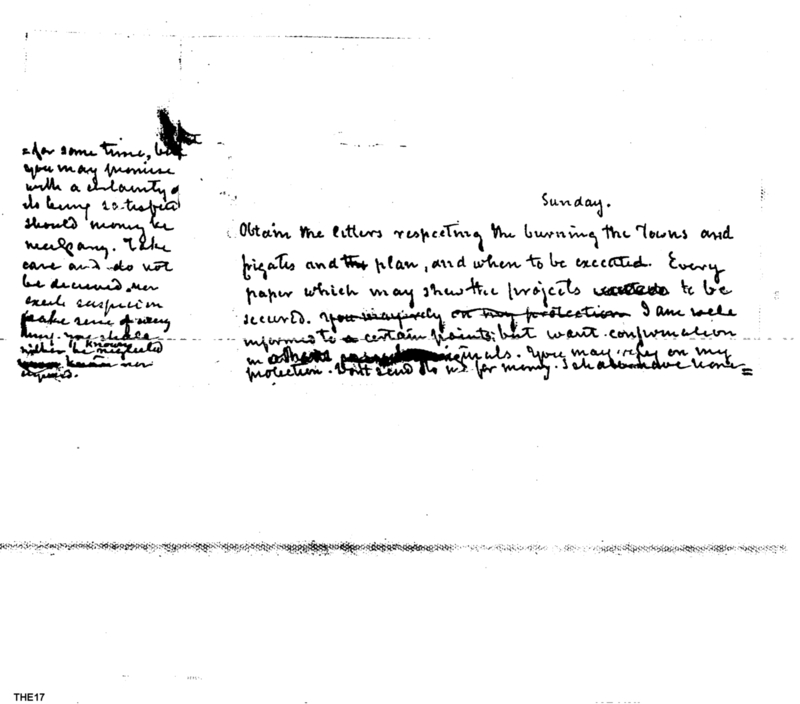 Sunday.
Obtain the letters respecting the burning the Towns and
frigates and the plan, and when to be executed. Every
paper which may shew the projects to be
secured. you may rely on my protection I am well
informed to a certain points; but want confirmation
in originals. You may rely on my
protection. Don't send to me for money. I shall have none=
=for some time, but
you may promise
with a certainty of
its being satisfied
should money be
necessary. Take
care and do not
be deceived nor
excite suspicion
make sense of every
thing. you shall
neither be neglected
known nor
exposed.
THE17